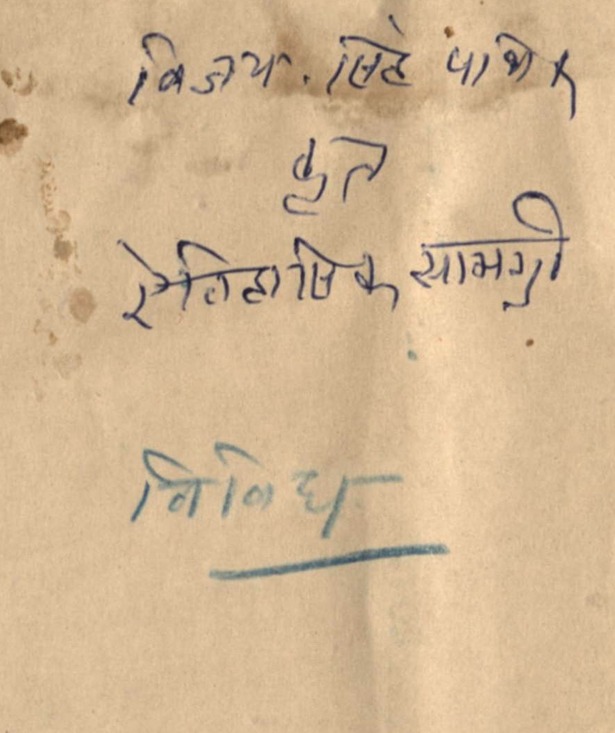 विजय. सिंह पथिक
कृत
ऐतिहासिक सामग्री
विविध